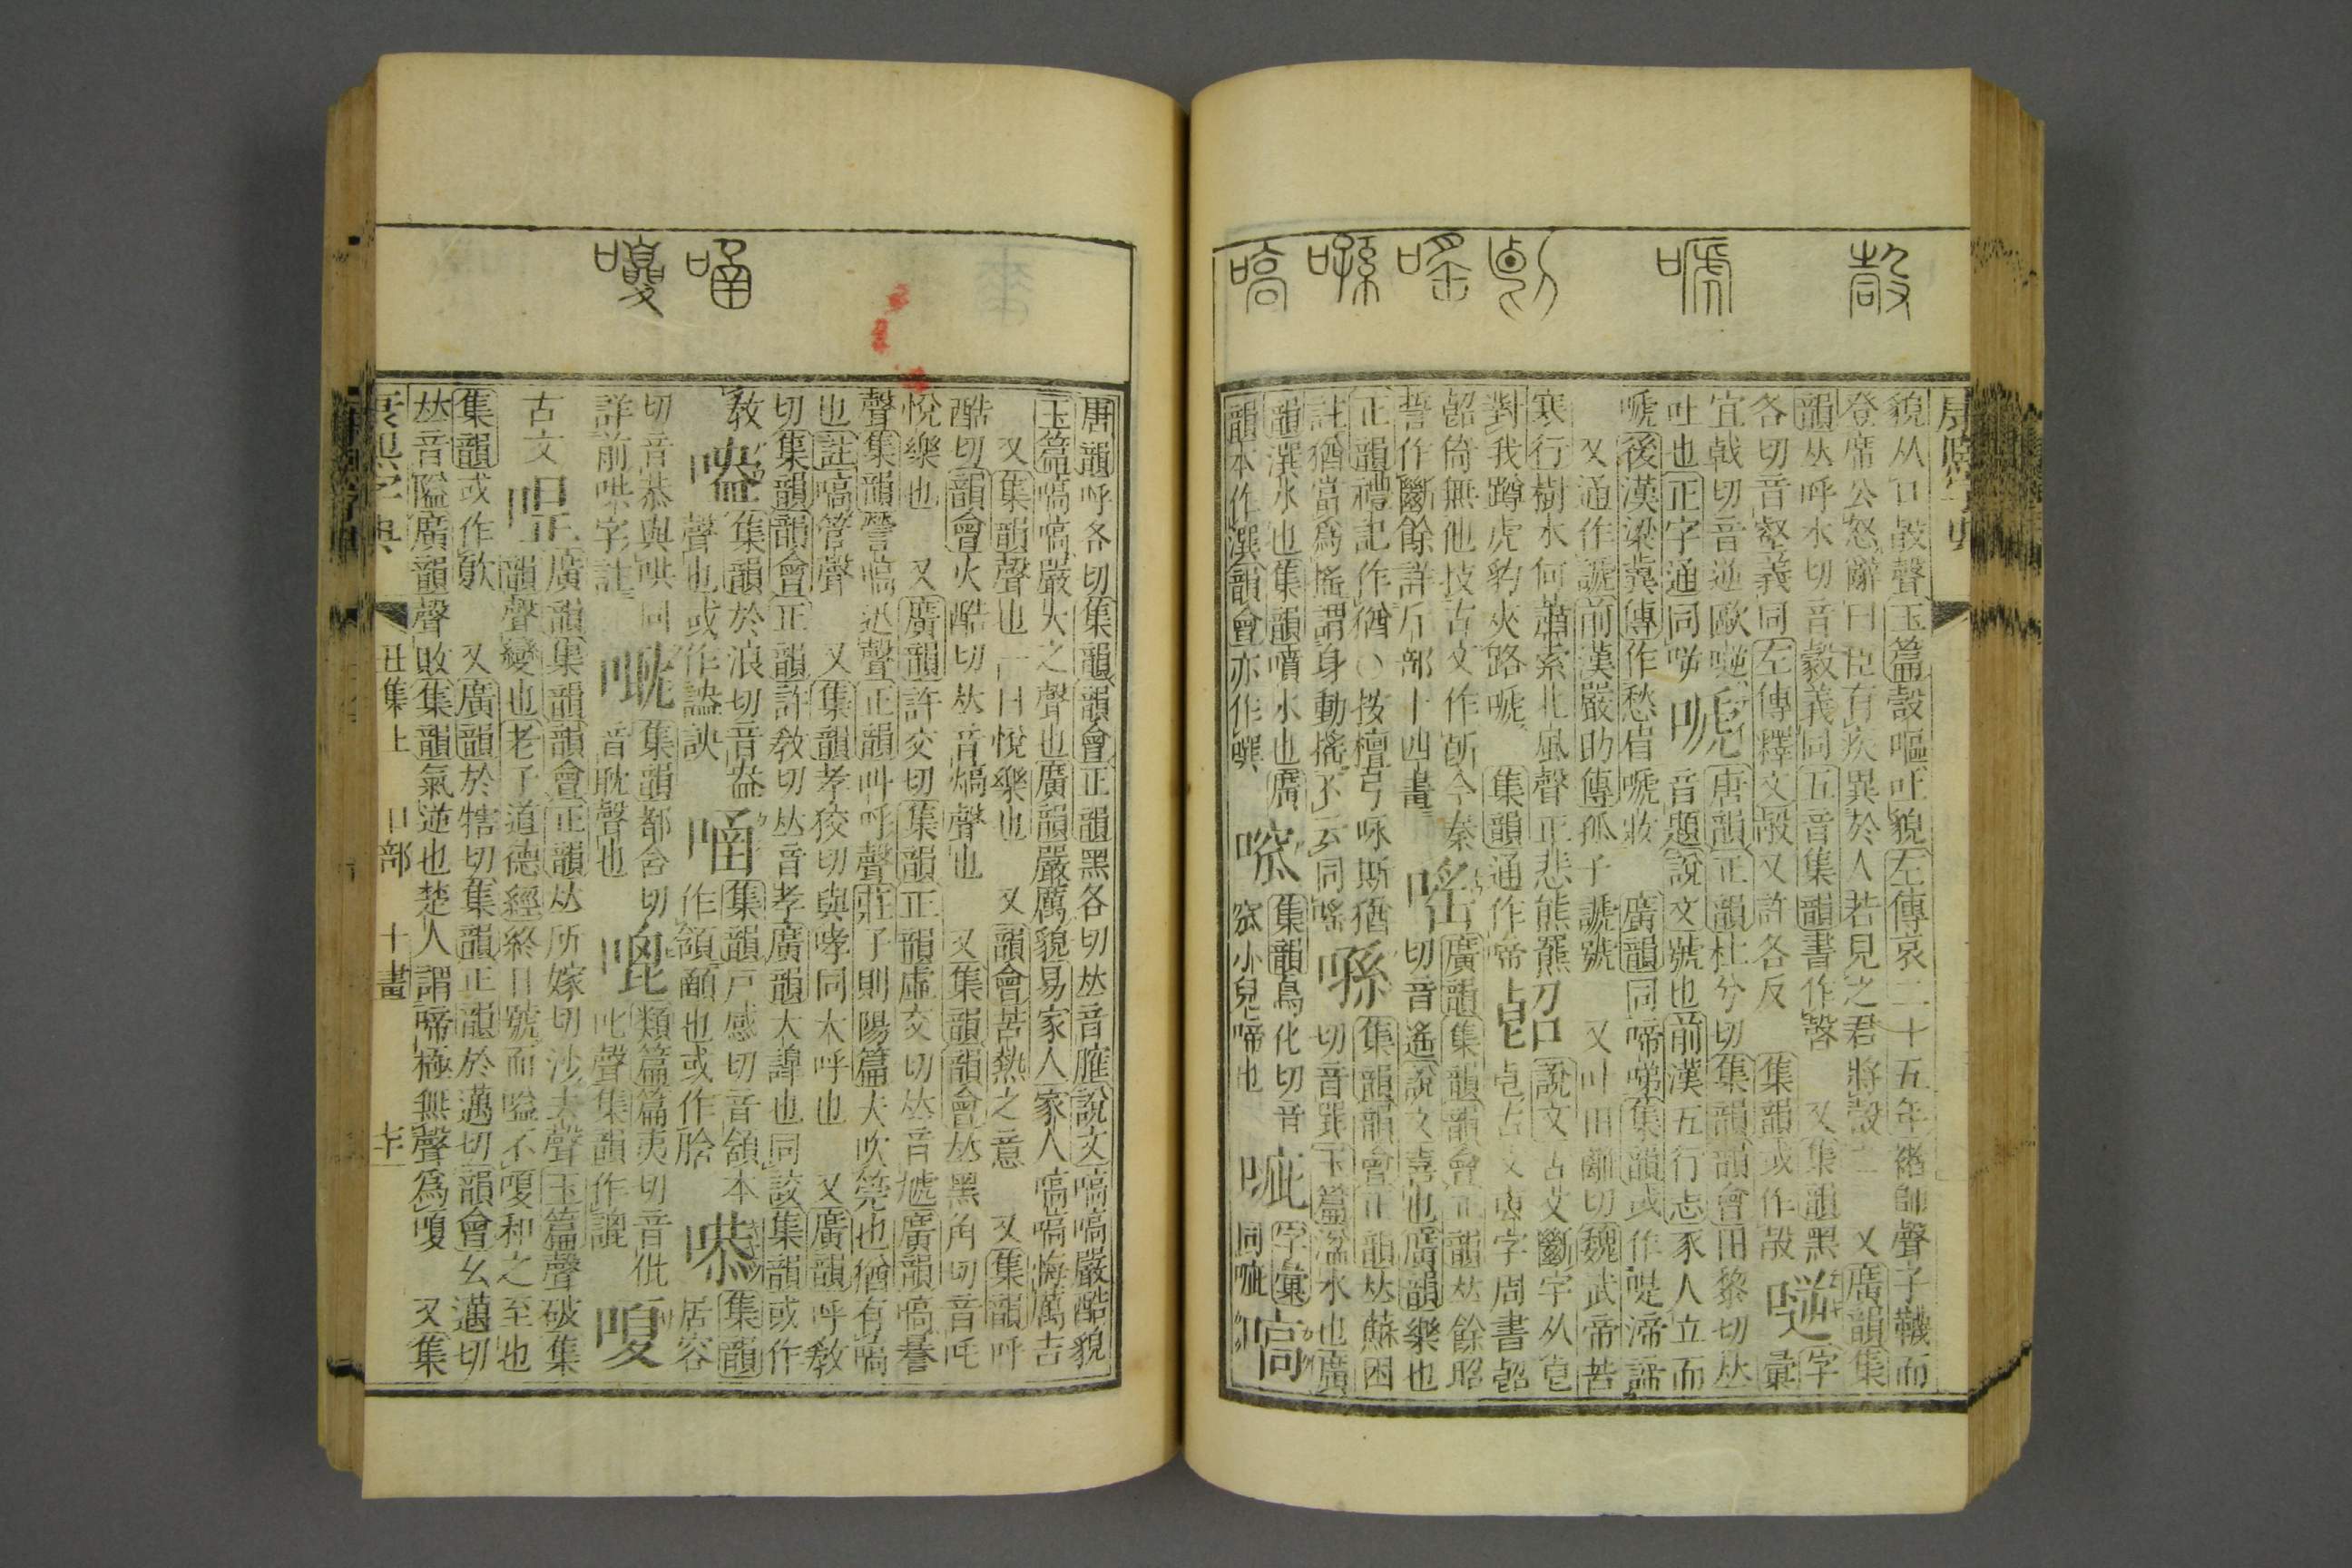 貌从口㱿聲玉篇㱿嘔吐貌左傳哀二十五年褚師聲子韤而
登席公怒辭曰臣有疾異於人若見之君將㱿之 又廣韻集
韻𠀤呼木切音㱿義同五音集韻書作嗀 又集韻黑
各切音壑義同左傳釋文㱿又許各反 集韻或作㱿 字彙
宜戟切音逆歐嗌
吐也正字通同㖕 嗁 唐韻正韻杜兮切集韻韻會田黎切𠀤
音題說文號也前漢五行志豕人立而
嗁後漢梁冀傳作愁眉嗁妝 廣韻同啼㖷集韻或作㖒渧諦
又通作謕前漢嚴助傳孤子謕號 又叶田離切魏武帝苦
寒行樹木何蕭索北風聲正悲熊羆
對我蹲虎豹夾路嗁 集韻通作啼 說文古文斷字从皀
皀古文叀字周書㫁
㫁猗無他技古文作㫁今秦
誓作斷餘詳斤部十四畫 嗂 廣韻集韻韻會正韻𠀤餘昭
切音遙說文喜也廣韻樂也
正韻禮記作猶〇按檀弓咏斯猶
註猶當爲搖謂身動搖不云同嗂 集韻韻會正韻𠀤蘇困
切音巽玉篇湓水也廣
韻潠水也集韻噴水也廣
韻本作潠韻會亦作噀 集韻烏化切音
窊小兒啼也 字彙
同呲 嗃
唐韻呼各切集韻韻會正韻黑各切𠀤音臛說文嗃嗃嚴酷貌
玉篇嗃嗃嚴大之聲也廣韻嚴厲貌易家人家人嗃嗃悔厲吉
又集韻聲也一曰悅樂也 又韻會苦熱之意 又集韻呼
酷切韻會火酷切𠀤音熇聲也 又集韻韻會𠀤黑角切音吒
悅樂也 又廣韻許交切集韻正韻虛交切𠀤音虓廣韻嗃謈
聲集韻謈嗃迅聲正韻叫呼聲莊子則陽篇夫吹筦也猶有嗃
也註嗃管聲 又集韻孝狡切與哮同大呼也 又廣韻呼敎
切集韻韻會正韻許敎切𠀤音孝廣韻大嘷也同詨集韻或作
敎 嗌 集韻於浪切音盎
聲也或作詇 㗖 集韻戸感切音頷本
作頷顄也或作肣 㗋 集韻
居容
切音恭與哄同
詳前哄字註 集韻都含切
音耽聲也 類篇篇夷切音仳
叱聲集韻作諀 嗄
古文 廣韻集韻韻會正韻𠀤所嫁切沙去聲玉篇聲破集
韻聲變也老子道德經終日號而嗌不嗄和之至也
集韻或作歍 又廣韻於犗切集韻正韻於邁切韻會幺邁切
𠀤音隘廣韻聲敗集韻氣逆也楚人謂啼極無聲爲嗄 又集
康熙字典 丑集上 口部 十畫